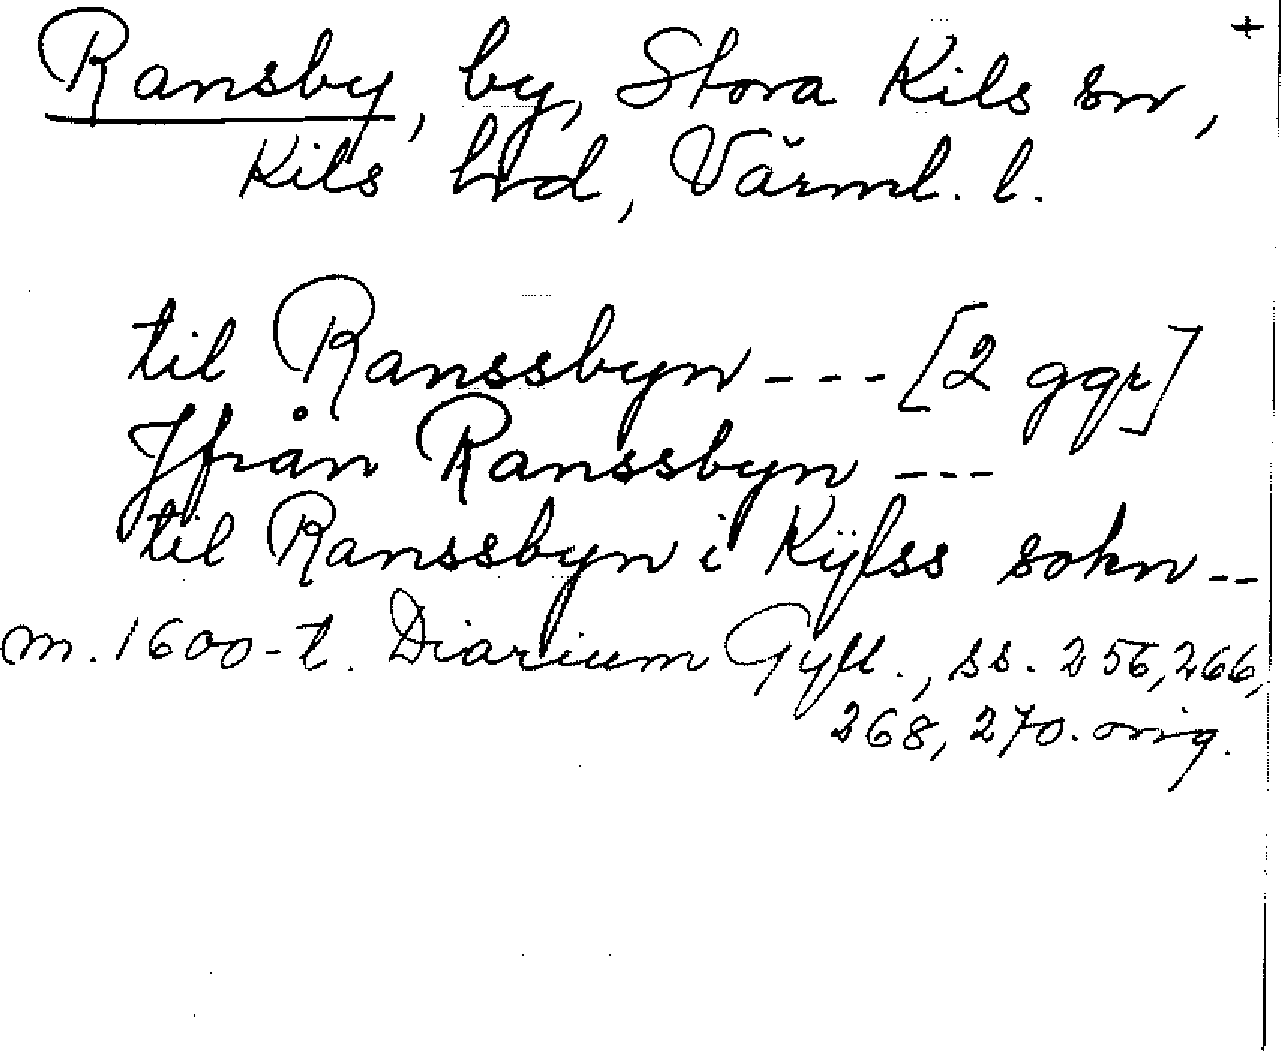 +
Ransby, by, Stora Kils sn,
Kils hd, Värml. l.
til Ranssbyn --- [2 ggr]
Jfrån Ranssbyn ---
til Ranssbyn i Kÿlss sokn --
m. 1600-t. Diarium Gyll., ss. 256, 266,
268, 270. orig.